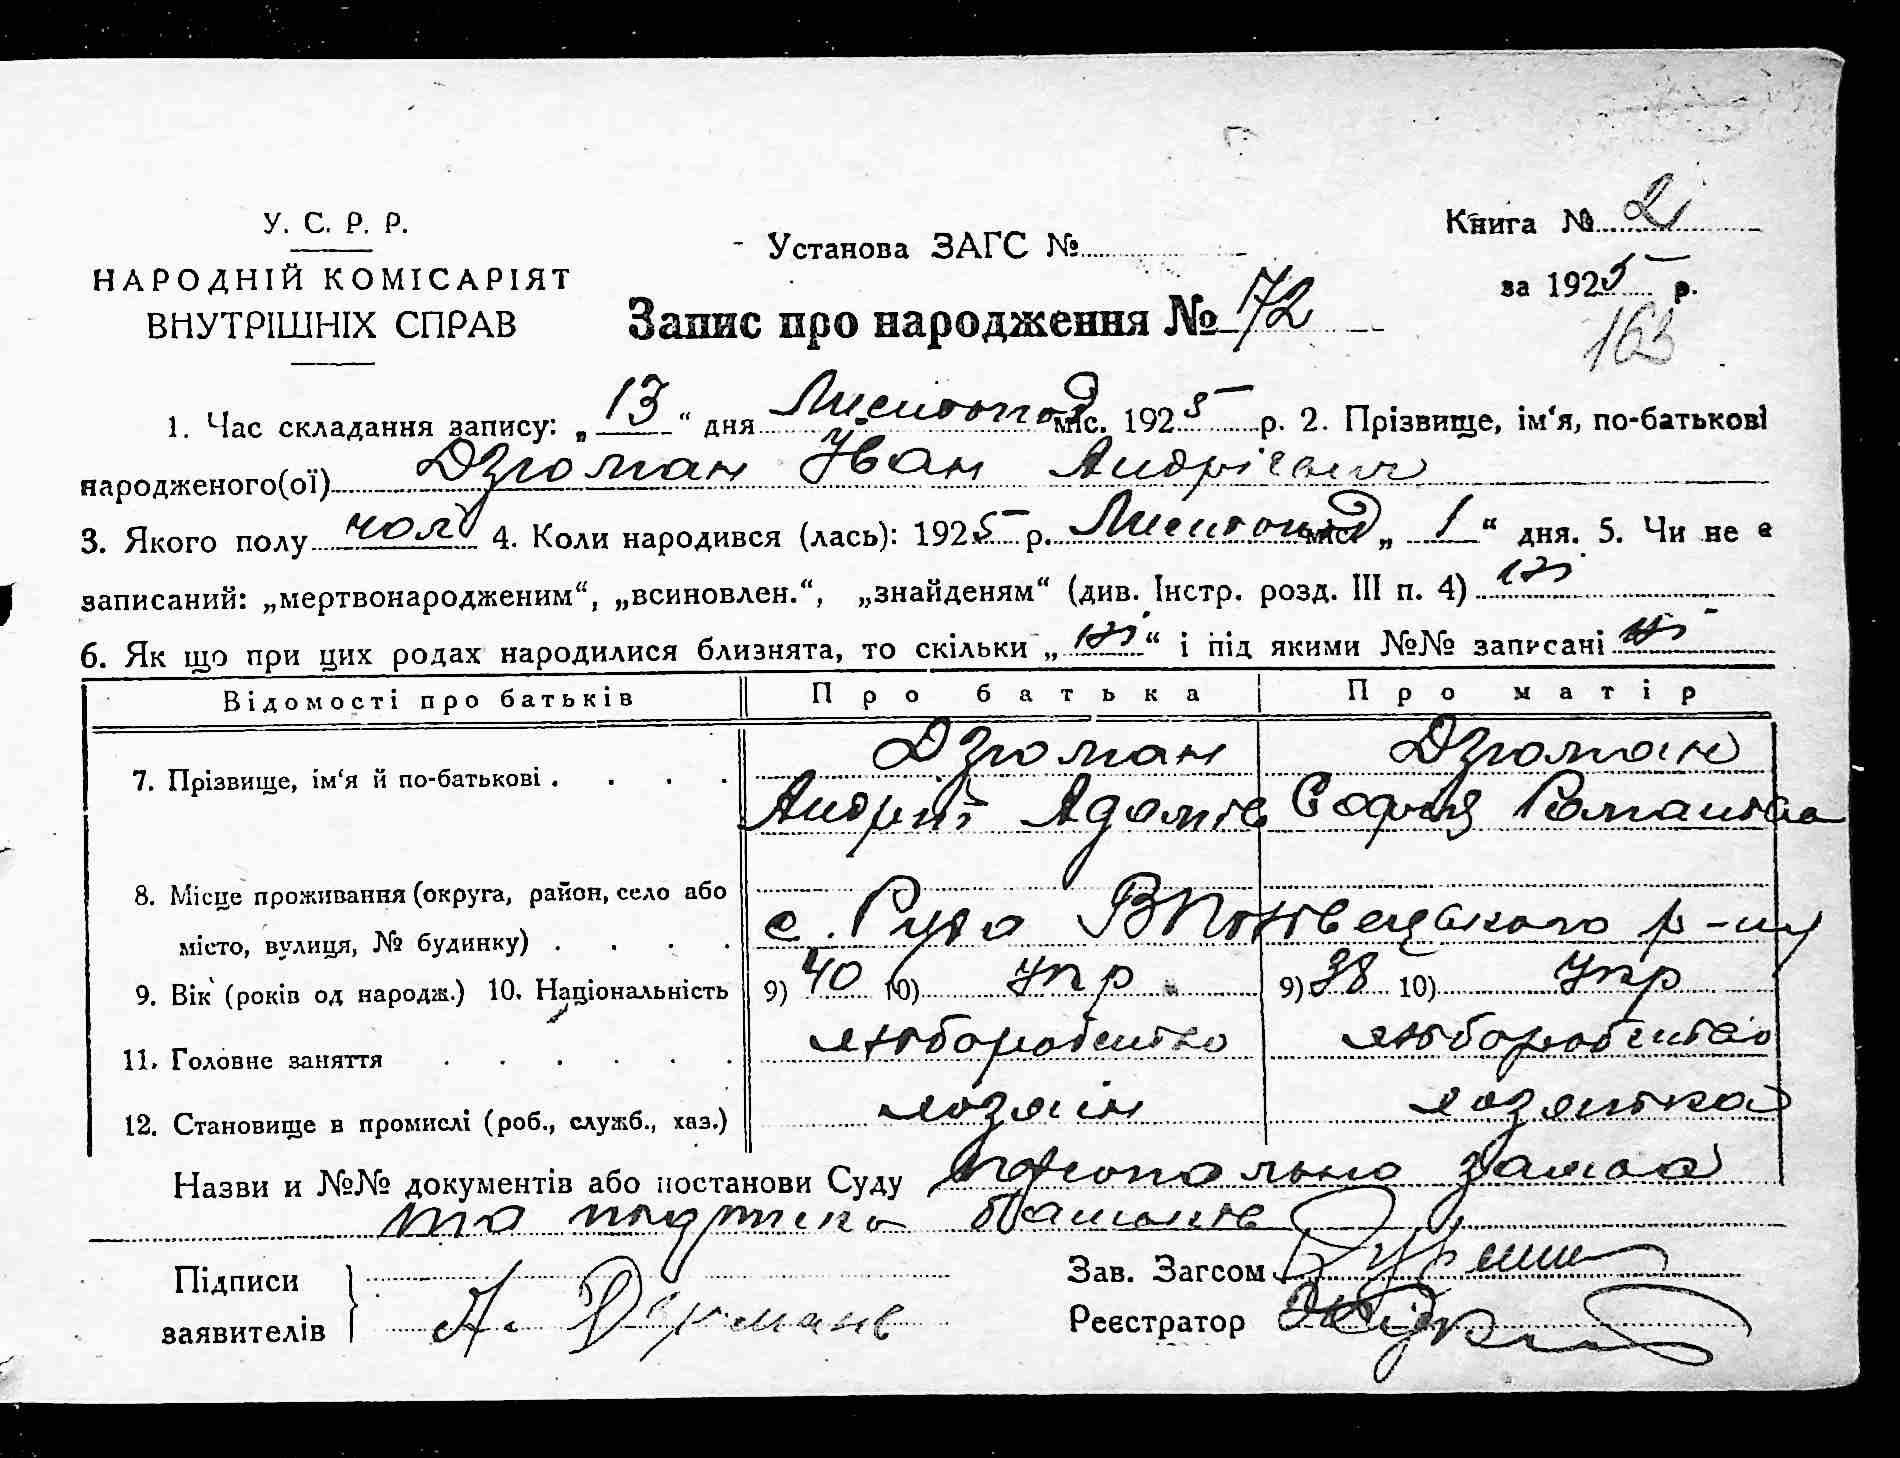 Книга № 2
У. С. Р. Р.
Установа ЗАГС №
за 1925 р.
НАРОДНІЙ КОМІСАРІЯТ
ВНУТРІШНІХ СПРАВ
Запис про народження № 72
163
1. Час складання запису: „13“ дня Листопад міс. 1925 р. 2. Прізвище, ім‘я, по-батькові
народженого(ої) Дзюман Іван Андрієвич
3. Якого полу чол 4. Коли народився (лась): 1925 р. Листопад міс. „1“ дня. 5. Чи не є
записаний: „мертвонародженим“, „всиновлен.“, „знайденям“ (див. Інстр. розд. III п. 4) ні
6. Як що при цих родах народилися близнята, то скільки „ні“ і під якими №№ записані ні
Відомості про батьків Про батька Про матір
7. Прізвище, ім‘я й по-батькові . . . . Дзюман Дзюман
Андрій Адамів Софія Романівна
8. Місце проживання (округа, район, село або
місто, вулиця, № будинку) . . . . с. Руда р-ну
9. Вік (років од народж.) 10. Національність 9) 40 10) Укр 9) 38 10) Укр
11. Головне заняття . . . . . . хліборобство хліборобство
12. Становище в промислі (роб., служб., хаз.) хозяін хозяйка
Назви и №№ документів або постанови Суду заява
та підписка батьків
Підписи
заявителів
А.
Зав. Загсом
Реєстратор